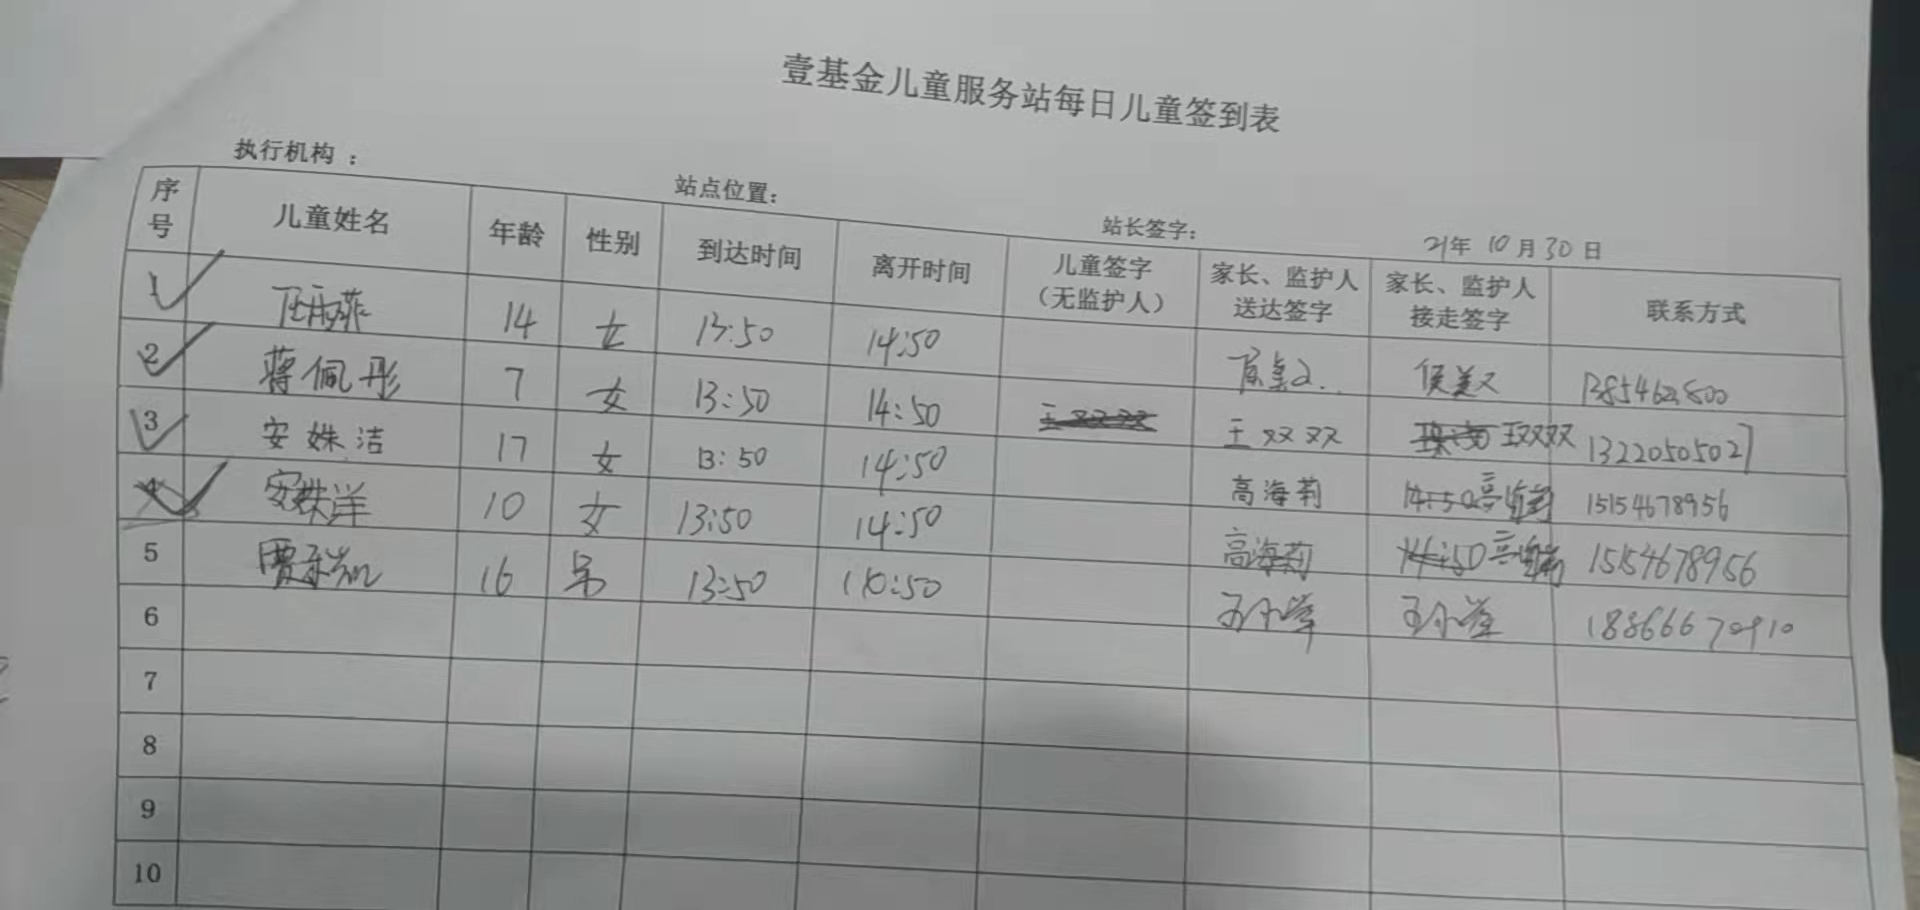 壹基金儿童服务站每日儿童签到表
执行机构： 站点位置： 站长签字： 21年 10月30日
序号 儿童姓名 年龄 性别 到达时间 离开时间 儿童签字（无监护人） 家长、监护人送达签字 家长、监护人接走签字 联系方式
1 14 女 13:50 14:50
2 蒋佩彤 7 女 13:50 14:50 王双双 王双双 13220505027
3 安姝洁 17 女 13:50 14:50 高海莉 15154678956
4 安姝洋 10 女 13:50 14:50 高海莉 15154678956
5 16 男 13:50 王小 王小 18866670910
6
7
8
9
10